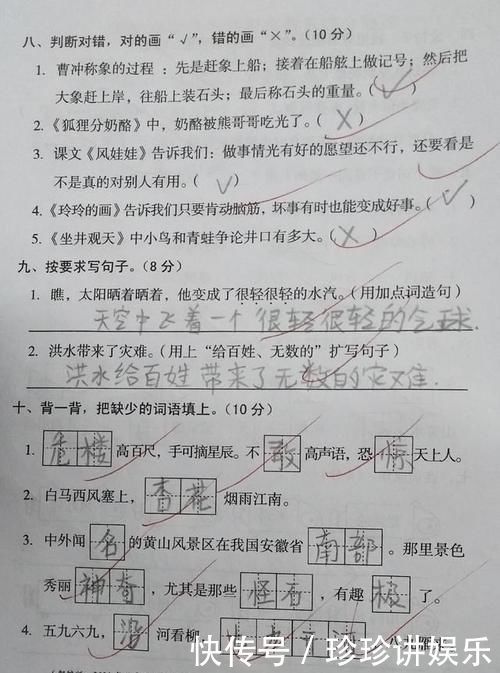 八、判断对错，对的画“√”，错的画“×”。(10分)
1. 曹冲称象的过程：先是赶象上船；接着在船舷上做记号；然后把
大象赶上岸，往船上装石头；最后称石头的重量。(✓)
2.《狐狸分奶酪》中，奶酪被熊哥哥吃光了。(X)
3. 课文《风娃娃》告诉我们：做事情光有好的愿望还不行，还要看是
不是真的对别人有用。(✓)
4.《玲玲的画》告诉我们只要肯动脑筋，坏事有时也能变成好事。(✓)
5.《坐井观天》中小鸟和青蛙争论井口有多大。(X)
九、按要求写句子。(8分)
1. 瞧，太阳晒着晒着，他变成了很轻很轻的水汽。(用加点词造句)
天空中飞着一个很轻很轻的气球.
2. 洪水带来了灾难。(用上“给百姓、无数的”扩写句子)
洪水给百姓带来了无数的灾难.
十、背一背，把缺少的词语填上。(10分)
1. 危楼高百尺，手可摘星辰。不敢高声语，恐惊天上人。
2. 白马西风塞上，杏花烟雨江南。
3. 中外闻名的黄山风景区在我国安徽省南部。那里景色
秀丽神奇，尤其是那些怪石，有趣极了。
4. 五九六九，沿河看柳，
快传号 / 珍珍讲娱乐